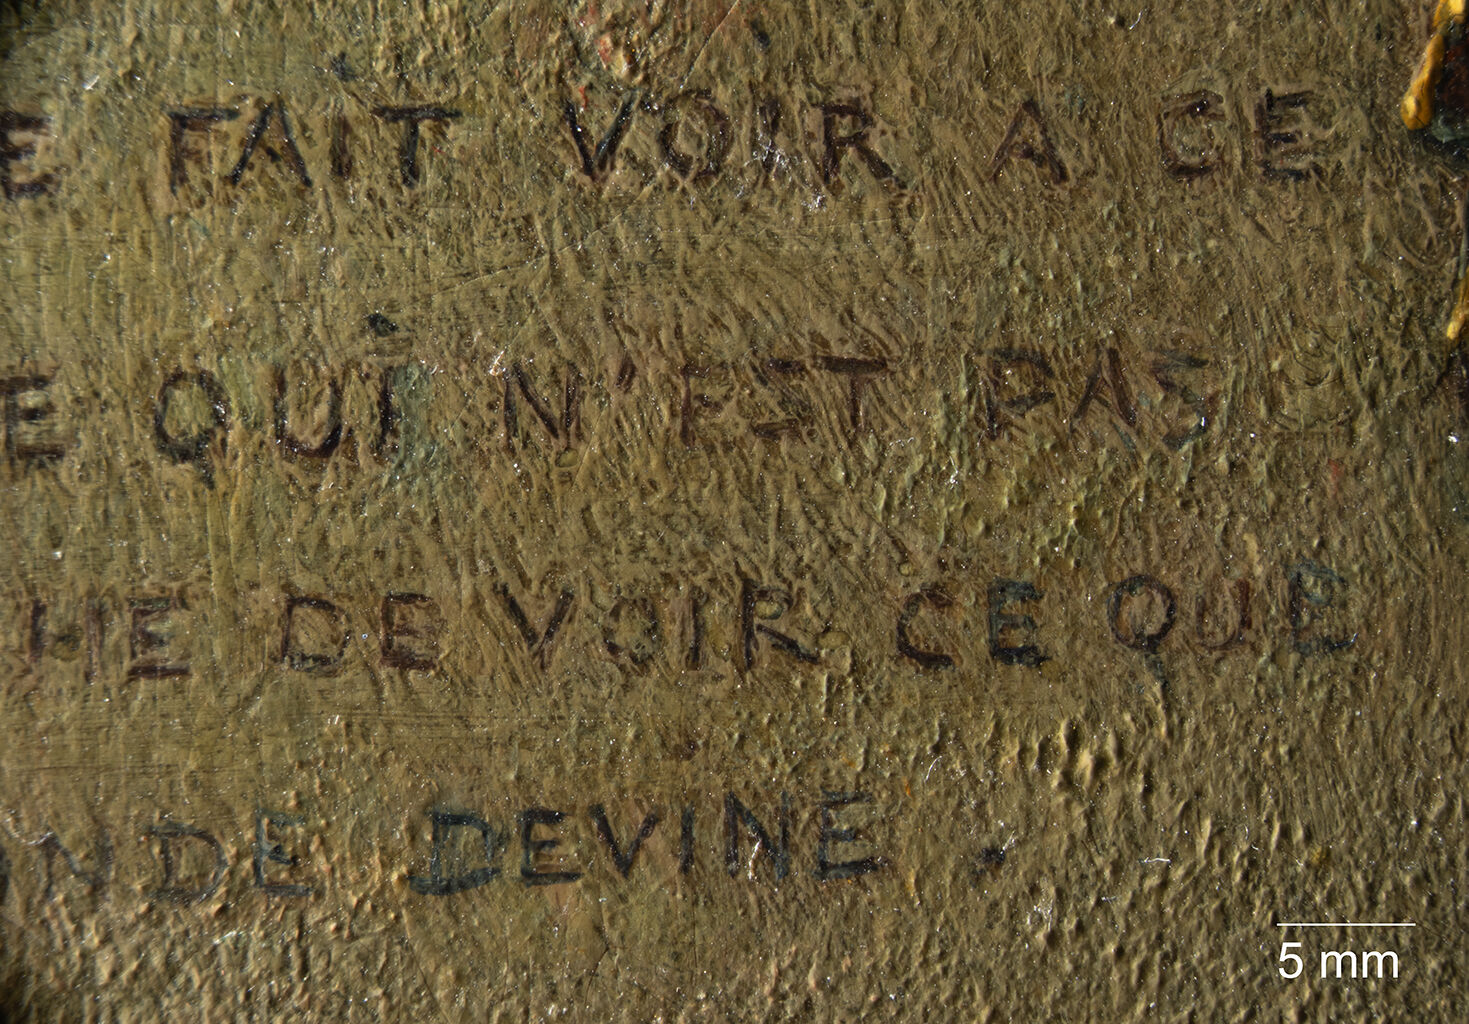 E FAIT VOIR A CE
E QUI N'EST PAS
HE DE VOIR CE QUE
ON DE DEVINE.
5 mm